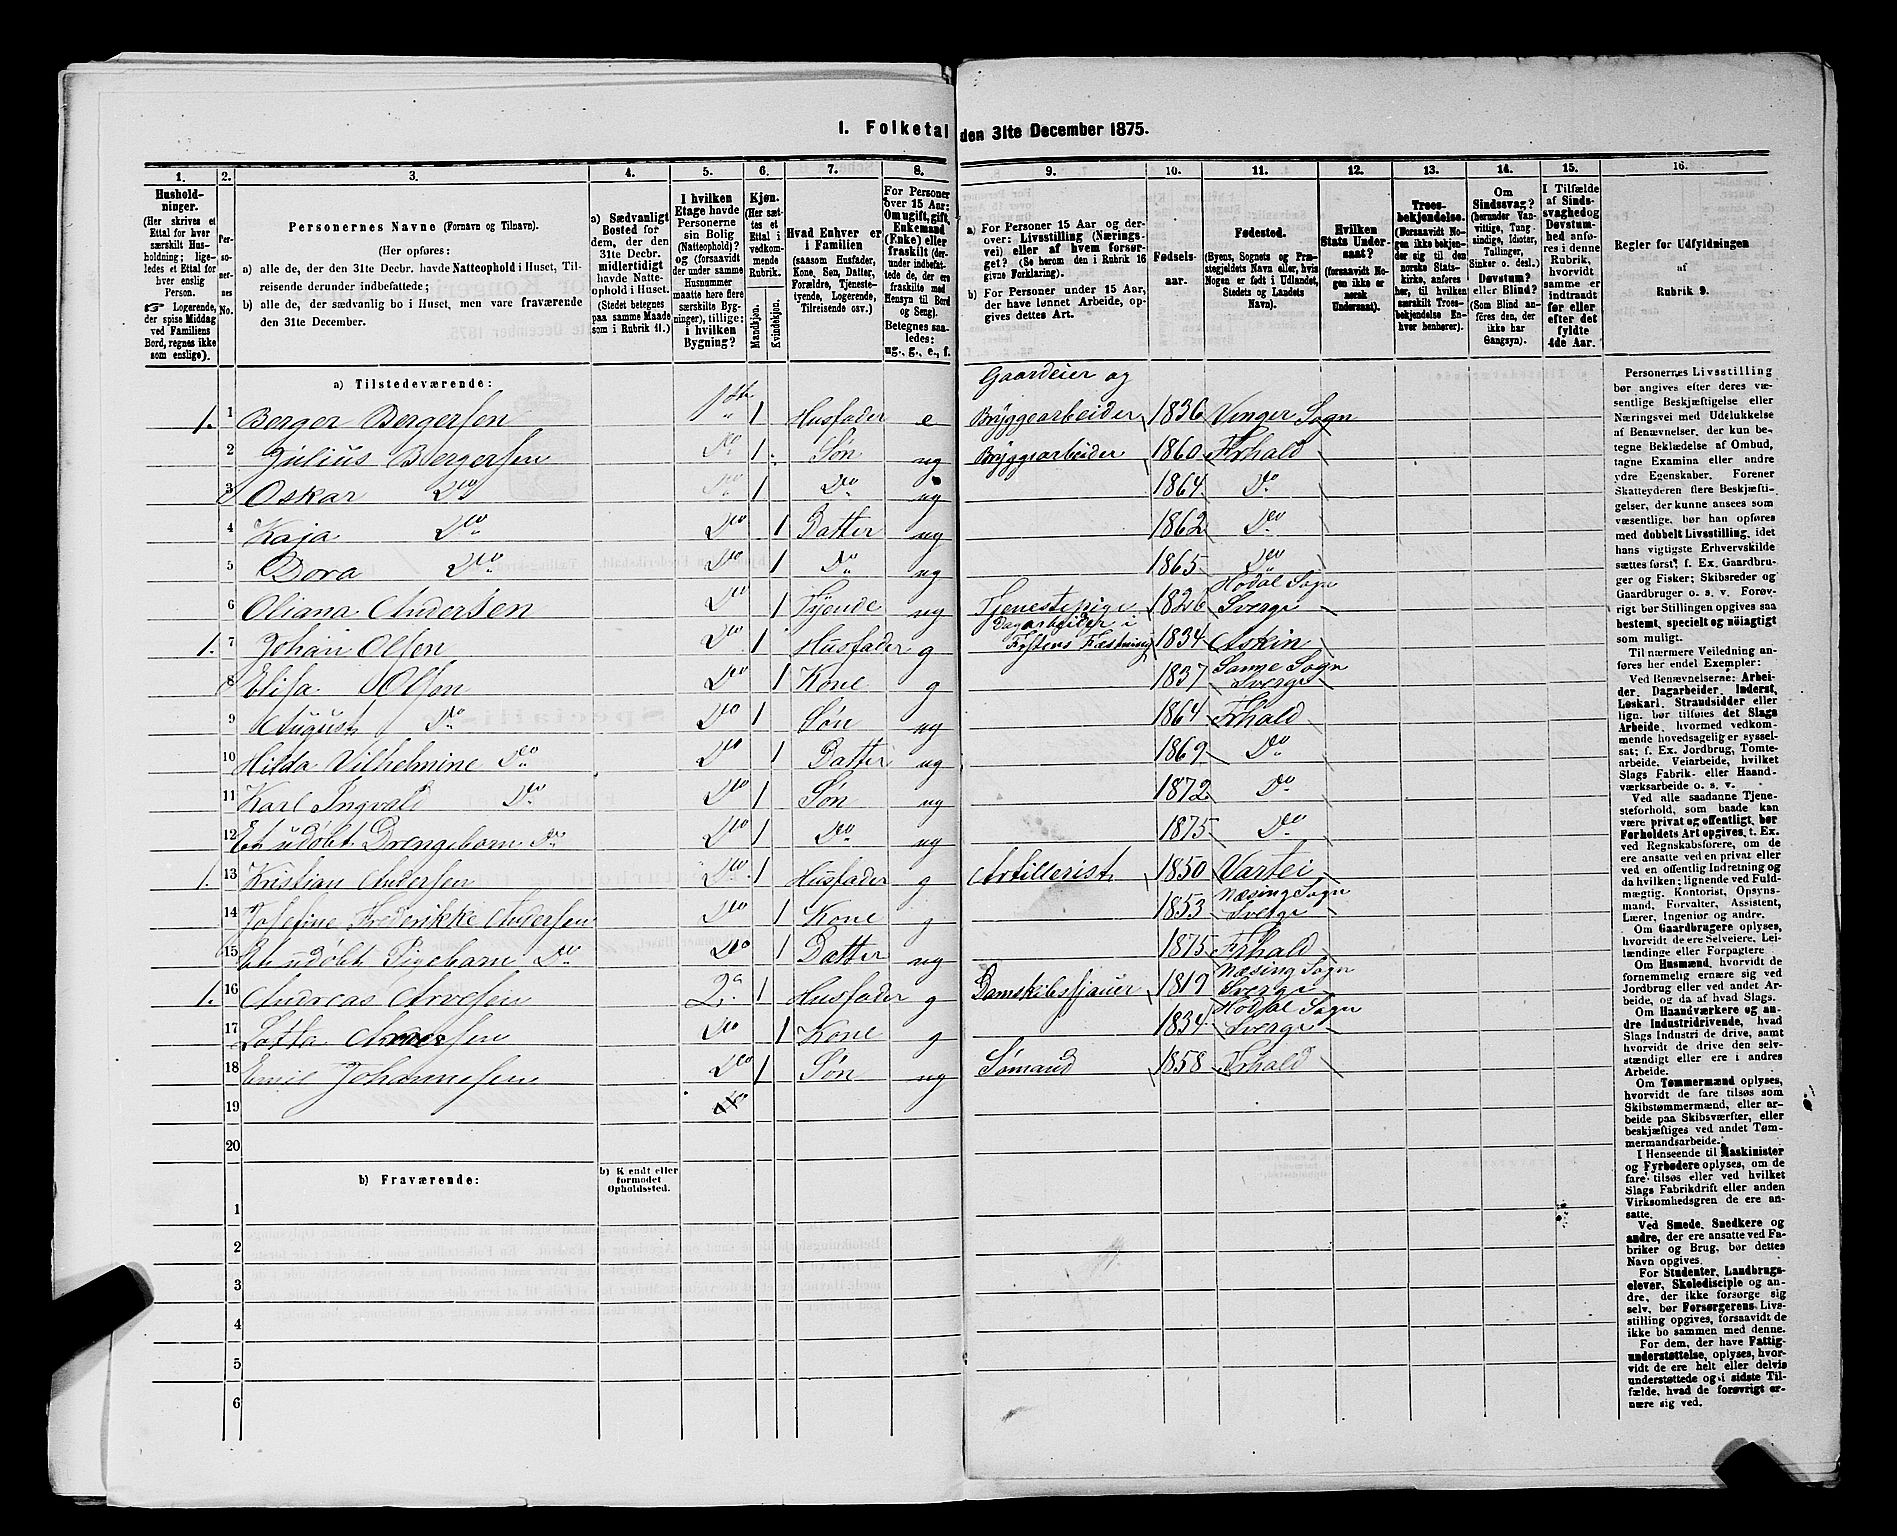 I. Folketal den 31te December 1875.
1. 2. 3. 4. 5. 6. 7. 8. 9. 10. 11. 12. 13. 14. 15. 16.
Hushold-
ninger.
(Her skrives et
Ettal for hver
særskilt Hus-
holdning; lige-
ledes et Ettal for
hver enslig
Person.
☞ Logerende,
der spise Middag
ved Familiens
Bord, regnes ikke
som enslige).
Per-
so-
ner-
nes
No.
Personernes Navne (Fornavn og Tilnavn).
(Her opføres:
a) alle de, der den 31te Decbr. havde Natteophold i Huset, Til-
reisende derunder indbefattede;
b) alle de, der sædvanlig bo i Huset, men vare fraværende
den 31te December.
a) Sædvanligt
Bosted for
dem, der den
31te Decbr.
midlertidigt
havde Natte-
ophold i Huset.
(Stedet betegnes
paa samme Maade
som i Rubrik 11.)
I hvilken
Etage havde
Personerne
sin Bolig
(Natteophold)?
og (forsaavidt
der under samme
Husnummer
maatte høre flere
særskilte Byg-
ninger), tillige:
i hvilken
Bygning?
Kjøn.
(Her sæt-
tes et
Ettal i
vedkom-
mende
Rubrik.
Mandkjøn.
Kvindekjøn.
Hvad Enhver er
i Familien
(saasom Husfader,
Kone, Søn, Datter,
Forældre, Tjeneste-
tyende, Logerende,
Tilreisende osv.)
For Personer
over 15 Aar:
Om ugift, gift,
Enkemand
(Enke) eller
fraskilt (der-
under indbefat-
tede de, der ere
fraskilte med
Hensyn til Bord
og Seng).
Betegnes saa-
ledes:
ug., g., e., f.
a) For Personer 15 Aar og der-
over: Livsstilling (Nærings-
vei) eller af hvem forsør-
get? (Se herom den i Rubrik 16
givne Forklaring).
b) For Personer under 15 Aar,
der have lønnet Arbeide, op-
gives dettes Art.
Fødsels-
aar.
Fødested.
(Byens, Sognets og Præ-
stegjeldets Navn eller, hvis
Nogen er født i Udlandet,
Stedets og Landets
Navn).
Hvilken
Stats Under-
saat?
(forsaavidt No-
gen ikke er
norsk
Undersaat).
Troes-
bekjendelse.
(forsaavidt No-
gen ikke bekjen-
der sig til den
norske Stats-
kirke, anføres
her, til hvilken
særskilt Troes-
bekjendelse En-
hver henhører).
Om
Sindssvag?
(herunder Van-
vittige, Tung-
sindige, Idioter,
Tullinger,
Sinker o. desl.)
Døvstum?
eller Blind?
(Som Blind an-
føres den, der
ikke har
Gangsyn).
I Tilfælde
af Sinds-
svaghed og
Døvstum-
hed anfø-
res i denne
Rubrik,
hvorvidt
samme er
indtraadt
før eller
efter det
fyldte
4de Aar.
Regler for Udfyldningen
af
Rubrik 9.
a) Tilstedeværende:
Gaardeier og
1. 1 Berger Bergersen 1 Husfader e Bryggearbeider 1836 Vinger Sogn
2 Julius Bergersen Do 1 Søn ug Bryggearbeider 1860 Frhald
3 Oskar Do Do 1 Do ug 1864 Do
4 Kaja Do Do 1 Datter ug 1862 Do
5 Dora Do Do 1 Do ug 1865 Do
Hodal Sogn
6 Oliana Andersen Do 1 Tyende ug Tjenestepige 1826 Sverge
Dagarbeider i
1. 7 Johan Olsen Do 1 Husfader g Fæstning 1834 Askim
Sanne Sogn
8 Elisa Olson Do 1 Kone g 1837 Sverge
9 August Do Do 1 Søn ug 1864 Frhald
10 Hilda Vilhelmine Do Do 1 Datter ug 1869 Do
11 Karl Ingvald Do Do 1 Søn ug 1872 Do
12 Et udøbt Drengebarn Do Do 1 Do ug 1875 Do
1. 13 Kristian Andersen Do 1 Husfader g Artillerist 1850 Vartei
Næsing Sogn
14 Josefine Frederikke Andersen Do 1 Kone g 1853 Sverge
15 Et udøbt Pigebarn Do Do 1 Datter ug 1875 Frhald
Næsing Sogn
1. 16 Andreas Arvesen 2 1 Husfader g Damskibssjauer 1819 Sverge
Hodal Sogn
17 Lotta Do 1 Kone g 1834 Sverge
18 Emil Johannesen Do 1 Søn ug Sømand 1858 Frhald
19
20
b) Fraværende:
b) Kjendt eller
formodet
Opholdssted.
1
2
3
4
5
6
Personernes Livsstilling
bør angives efter deres væ-
sentlige Beskjæftigelse eller
Næringsvei med Udelukkelse
af Benævnelser, der kun be-
tegne Beklædelse af Ombud,
tagne Examina eller andre
ydre Egenskaber. Forener
Skatteyderen flere Beskjæfti-
gelser, der kunne ansees som
væsentlige, bør han opføres
med dobbelt Livsstilling, idet
hans vigtigste Erhvervskilde
sættes først; f. Ex. Gaardbru-
ger og Fisker; Skibsreder og
Gaardbruger o. s. v. Forøv-
rigt bør Stillingen opgives saa
bestemt, specielt og nøiagtigt
som muligt.
Til nærmere Veiledning an-
føres her endel Exempler:
Ved Benævnelserne: Arbei-
der, Dagarbeider, Inderst,
Løskarl, Strandsidder eller
lign. bør tilføies det Slags
Arbeide, hvormed vedkom-
mende hovedsagelig er syssel-
sat; f. Ex. Jordbrug, Tomte-
arbeide, Veiarbeide, hvilket
Slags Fabrik- eller Haand-
værksarbeide o. s. v.
Ved alle saadanne Tjene-
steforhold, som baade kan
være privat og offentligt, bør
Forholdets Art opgives, t. Ex.
ved Regnskabsførere, om de
ere ansatte ved en privat eller
ved en offentlig Indretning og
da hvilken; lignende ved Fuld-
mægtig, Kontorist, Opsyns-
mand, Forvalter, Assistent,
Lærer, Ingeniør og andre.
Om Gaardbrugere oplyses,
hvorvidt de ere Selveiere, Lei-
lændinge eller Forpagtere.
Om Husmænd, hvorvidt de
fornemmelig ernære sig ved
Jordbrug eller ved andet Ar-
beide, og da af hvad Slags.
Om Haandværkere og an-
dre Industridrivende, hvad
Slags Industri de drive, samt
hvorvidt de drive den selv-
stændigt eller ere i andres
Arbeide.
Om Tømmermænd oplyses,
hvorvidt de fare tilsøs som
Skibstømmermænd, eller ar-
beide paa Skibsværfter, eller
beskjæftiges ved andet Tøm-
mermandsarbeide.
I Henseende til Maskinister
og Fyrbødere oplyses, om de
fare tilsøs eller ved hvilket
Slags Fabrikdrift eller anden
Virksomhedsgren de ere an-
satte.
Ved Smede, Snedkere og
andre, der ere ansatte ved Fa-
briker og Brug, bør dettes
Navn opgives.
For Studenter, Landbrugs-
elever, Skoledisciple og an-
dre, der ikke forsørge sig
selv, bør Forsørgerens Livs-
stilling opgives, forsaavidt de
ikke bo sammen med denne.
For dem, der have Fattig-
understøttelse, oplyses, hvor-
vidt de ere helt eller delvis
understøttede og i sidste Til-
fælde, hvad de forøvrigt er-
nære sig ved.